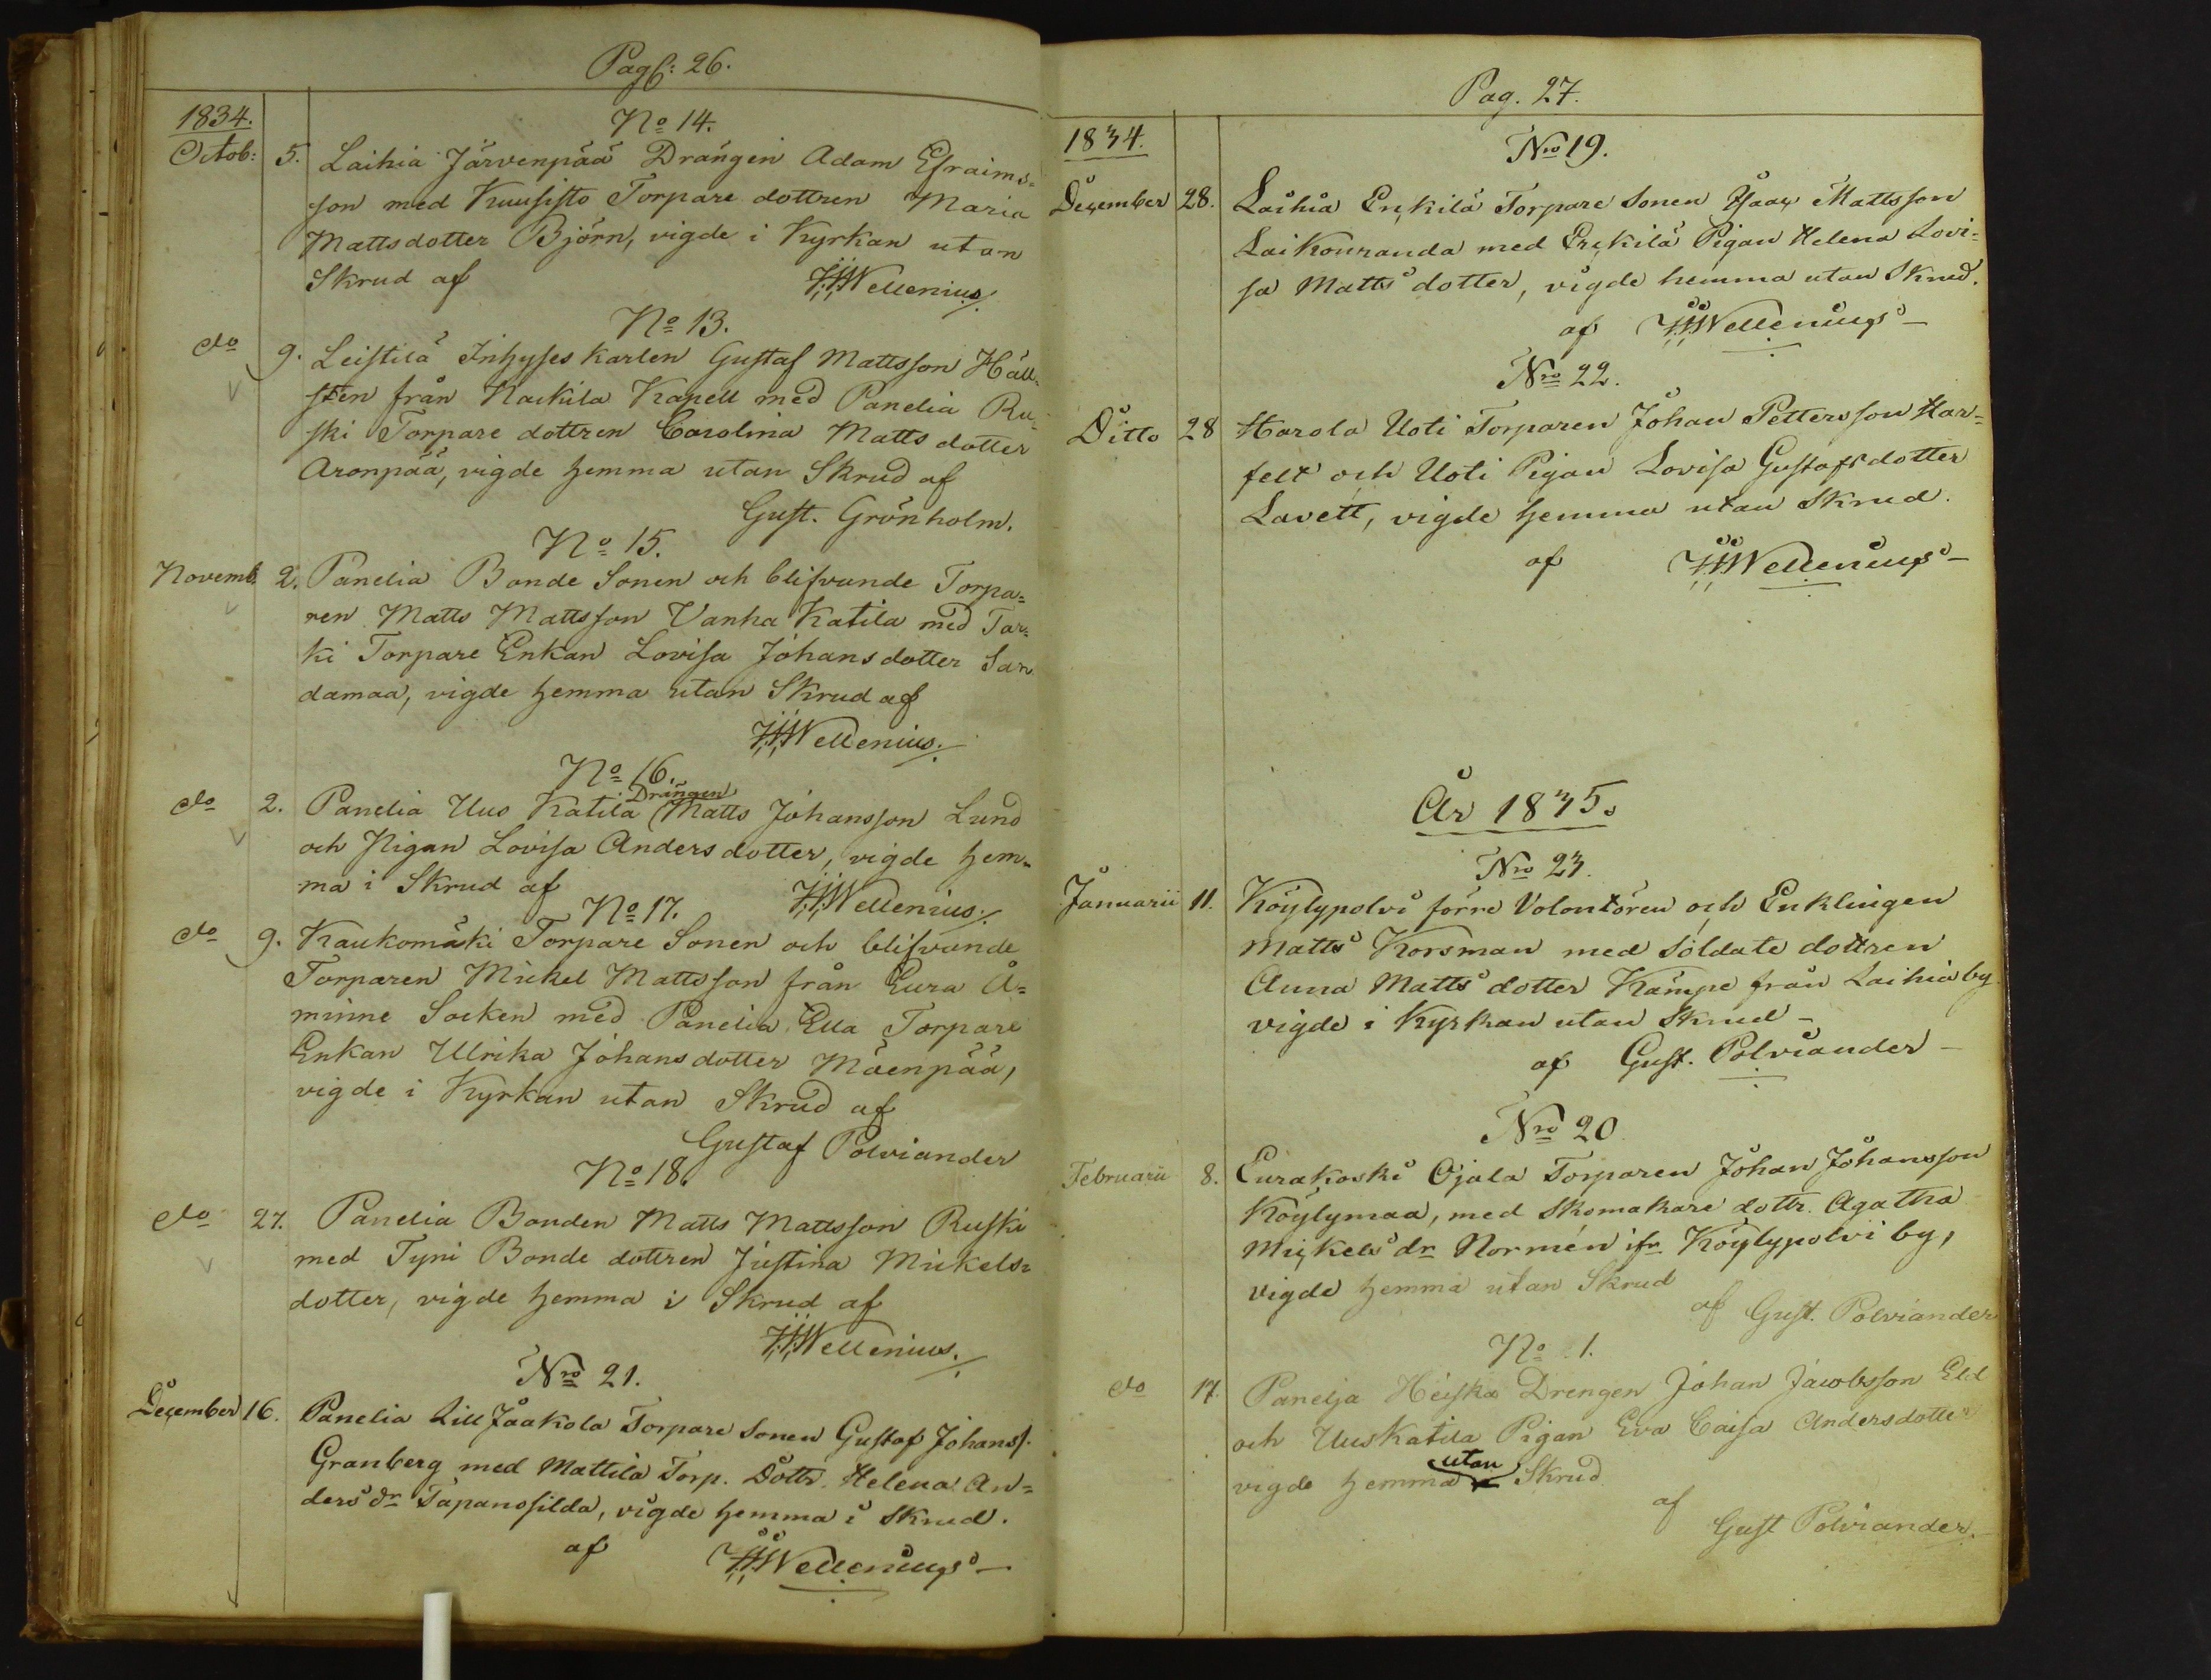 Pag: 26.
1834.
No 14.
Octob: 5. Laihia Järvenpää Drängen Adam Efraims=
son med Kuusisto Torpare dottren Maria
Mattsdotter Björn, vigde i Kyrkan utan
Skrud af Wellenius.
No 13.
do 9. Leistilä Inhyses karlen Gustaf Mattsson Häll=
sten från Nackila Kapell med Panelia Ru=
ski Torpare dottren Carolina Matts dotter
Aronpää, vigde hemma utan Skrud af
Gust. Grönholm.
No 15.
Novemb. 2. Panelia Bonde Sonen och blifvande Torpa=
ren Matts Mattsson Vanha Katila med Tar=
ki Torpare Enkan Lovisa Johansdotter San
damaa, vigde hemma utan Skrud af
Wellenius.
No 16.
Drängen
do 2. Panelia Uus Katila Matts Johansson Lund
och Pigan Lovisa Andersdotter, vigde hem=
ma i Skrud af Wellenius.
No 17.
do 9. Kaukomäki Torpare Sonen och blifvande
Torparen Mickel Mattsson från Eura Å=
minne Socken med Panelia Ella Torpare
Enkan Ulrika Johansdotter Mäenpää,
vigde i Kyrkan utan Skrud af
Gustaf Polviander
No 18.
do 27. Panelia Bonden Matts Mattsson Ruski
med Tyni Bonde dottren Justina Mickels=
dotter, vigde hemma i Skrud af
Wellenius.
Nro 21.
December 16. Panelia Lill Jaakola Torpare Sonen Gustaf Johanss.
Granberg med Mattila Torp. Dottr. Helena An=
ders dr Tapanosilda, vigde hemma i Skrud.
af Wellenius
Pag. 27.
1834.
Nro 19.
December 28. Laihia Erkilä Torpare Sonen Isaac Mattsson
Laikonranda med Erkilä Pigan Helena Lovi=
sa Matts dotter, vigde hemma utan Skrud.
af Wellenius
Nro 22.
Ditto 28 Harola Uoti Torparen Johan Pettersson Har=
felt och Uoti Pigan Lovisa Gustafsdotter
Lavett, vigde hemma utan Skrud.
af Wellenius
År 1835.
Nro 23.
Januarii 11. Köylypolvi förre Volontören och Enklingen
Matts Korsman med Soldate dottren
Anna Matts dotter Kämpe från Laihia by
vigde i Kyrkan utan Skrud
af Gust. Polviander
Nro 20
Februarii 8. Eurakoski Ojala Torparen Johan Johansson
Köylymaa, med Skomakare dottr. Agatha
Mickels dr Normén ifr. Köylypolvi by,
vigde hemma utan Skrud
af Gust. Polviander
No 1.
do 17. Panelja Heiska Drengen Johan Jacobsson Eld
och Uuskatila Pigan Eva Caisa Andersdotter
utan
vigde hemma Skrud
af
Gust Polviander.